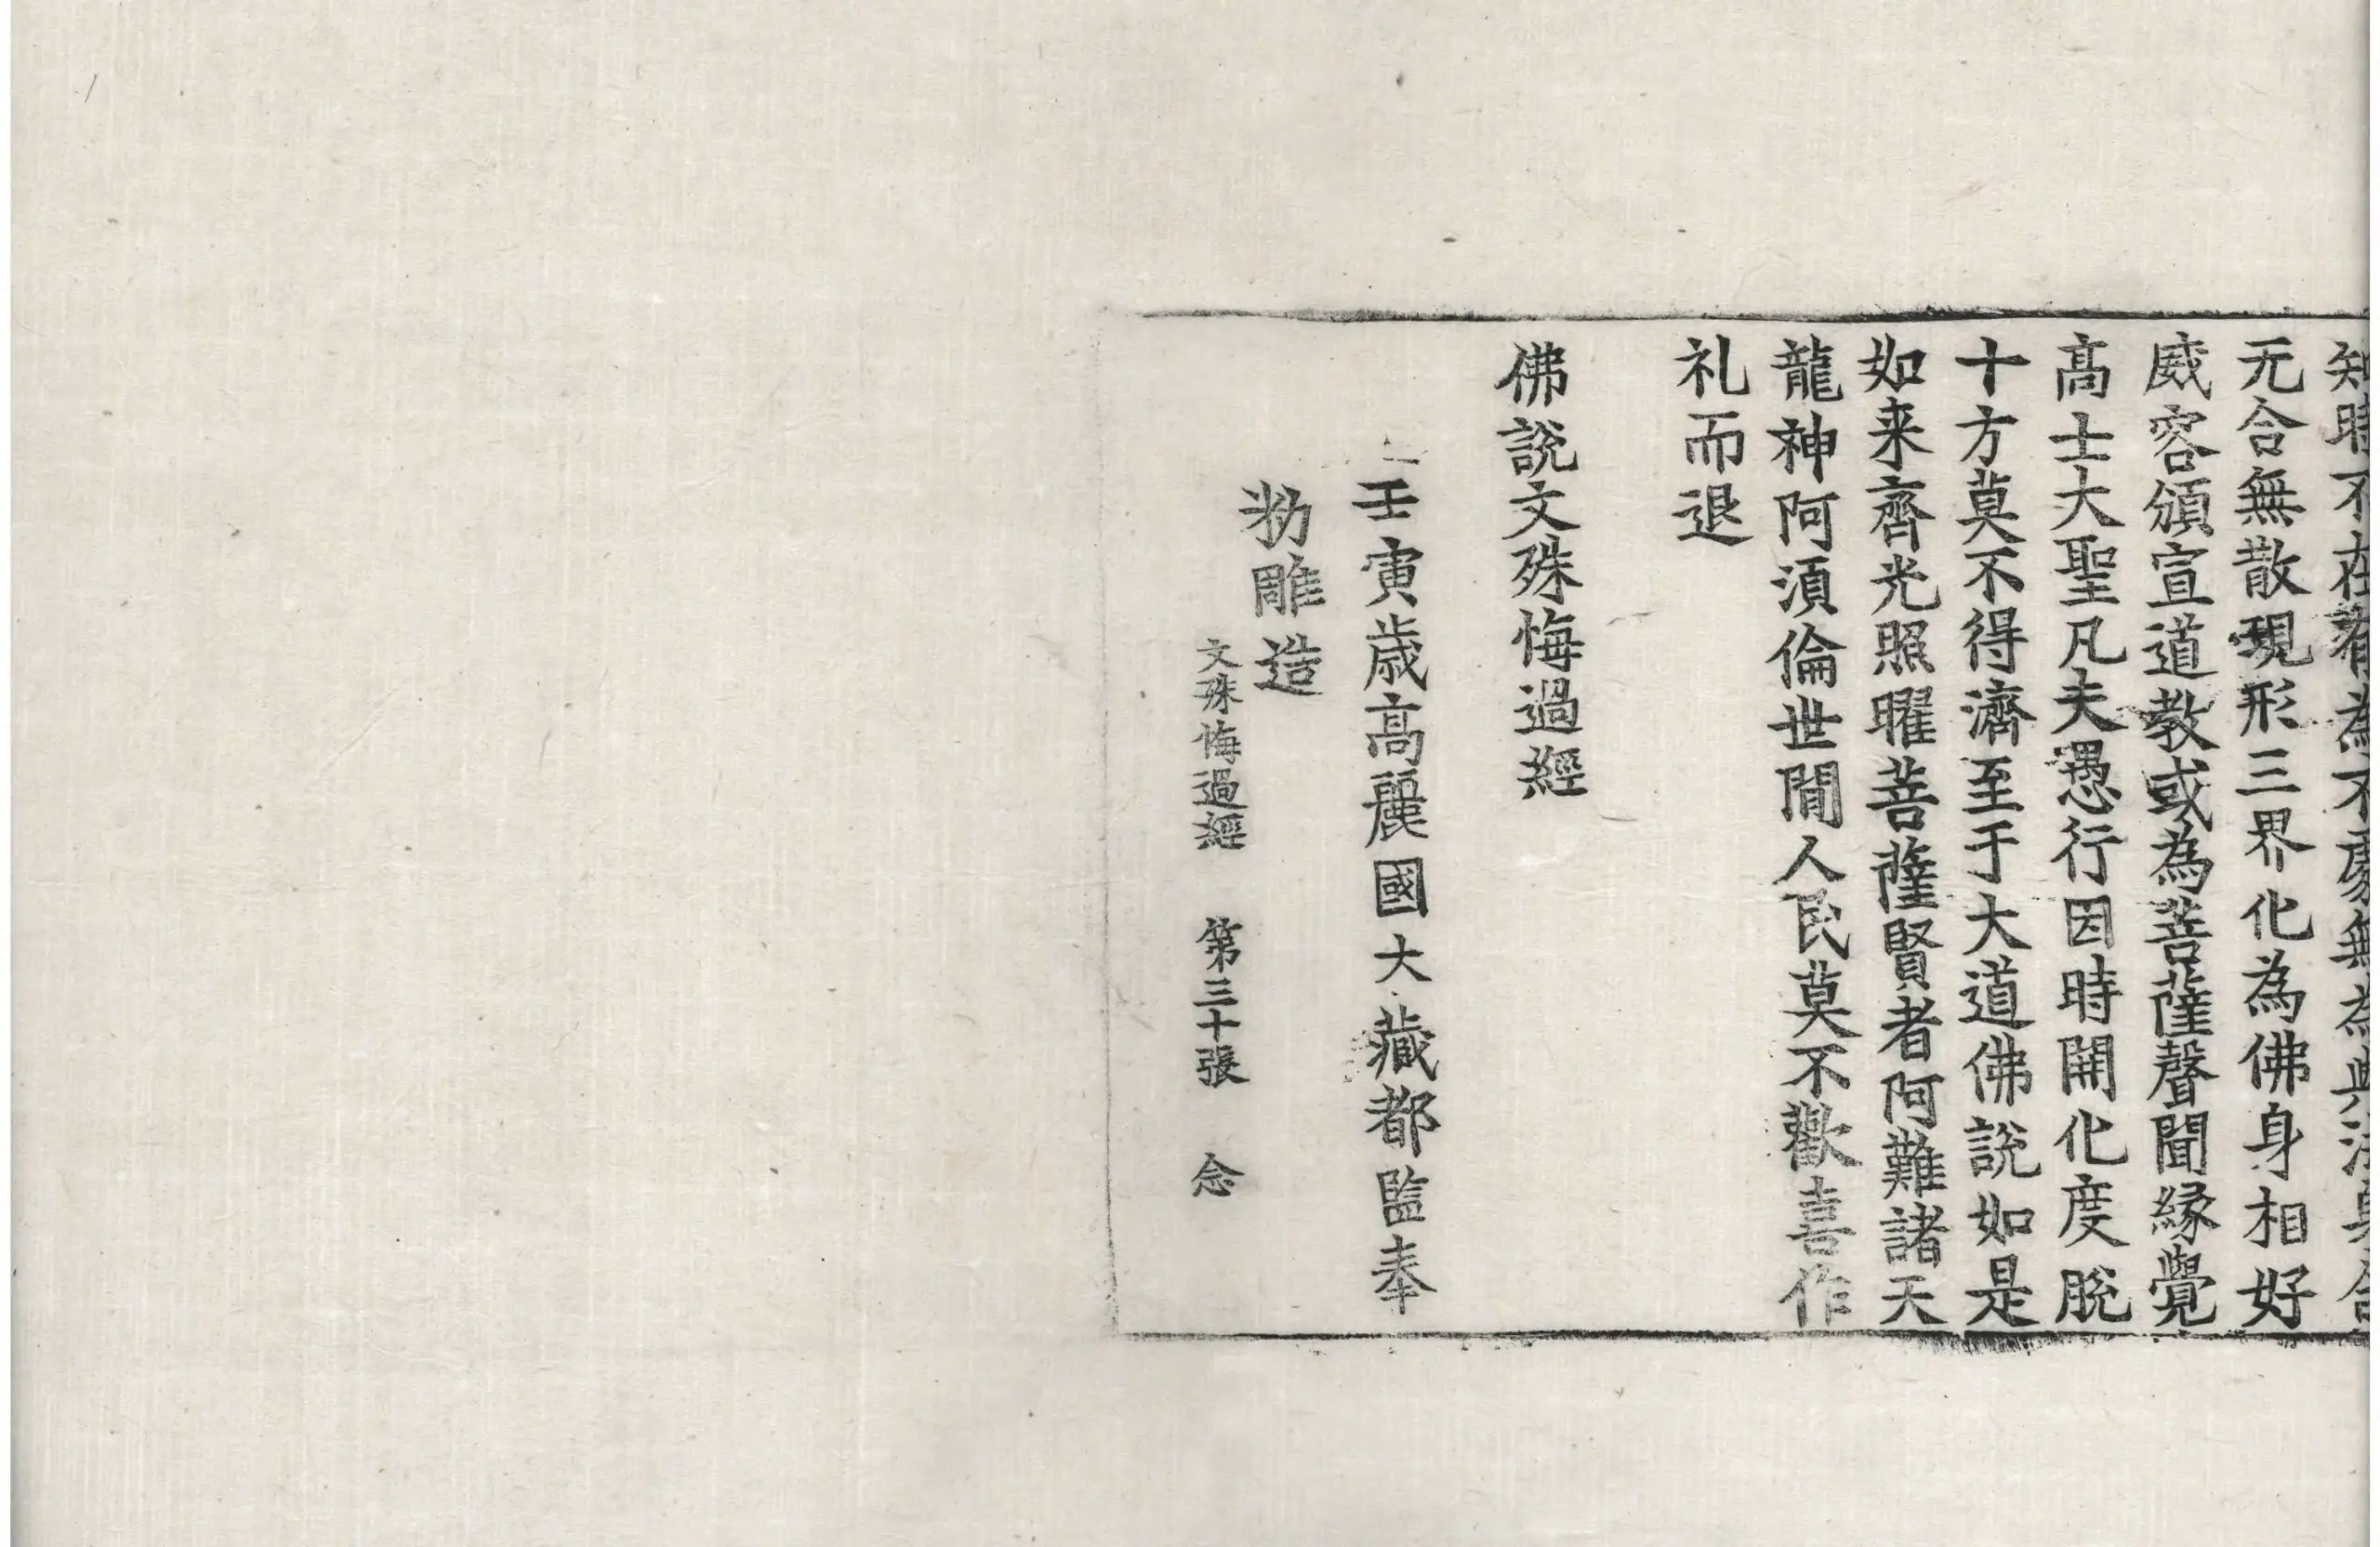 知時不在有為不處無為典法身合
无合無散現形三界化為佛身相好
威容頒宣道教或為菩薩聲聞緣覺
高士大聖凡夫愚行因時開化度脫
十方莫不得濟至于大道佛說如是
如来齊光照曜菩薩賢者阿難諸天
龍神阿湏倫世閒人民莫不歡喜作
礼而退
佛說文殊悔過經
壬寅歲高麗國大藏都監奉
勑雕造
文殊悔過經 第三十張 念